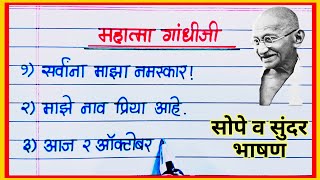 महात्मा गांधीजी
१) सर्वांना माझा नमस्कार!
२) माझे नाव प्रिया आहे.
३) आज २ ऑक्टोबर
सोपे व सुंदर
भाषण